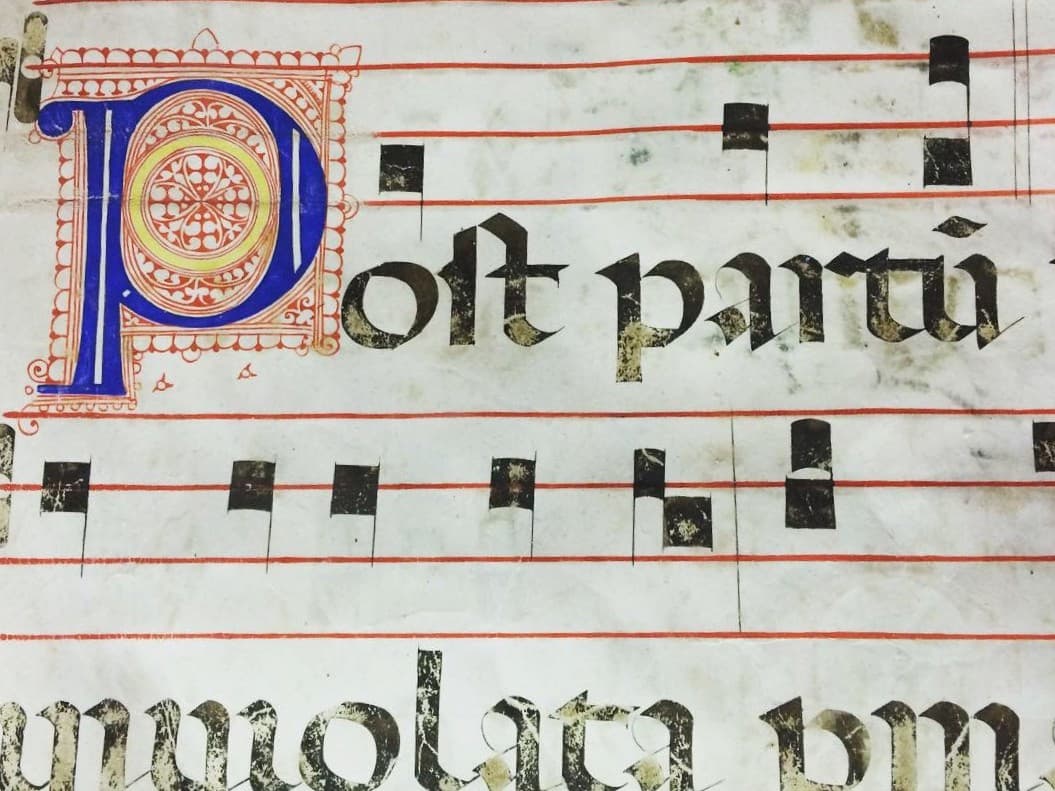 Post partū
inuiolata pm